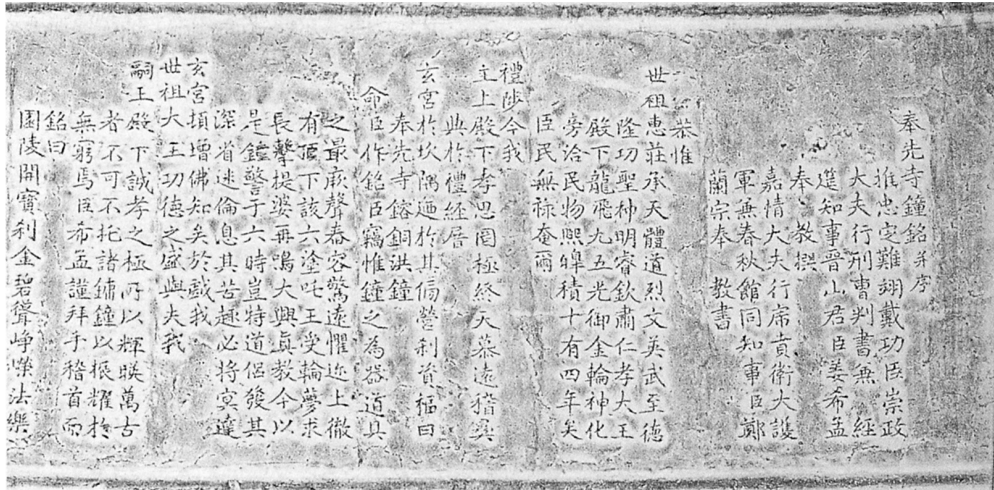 奉先寺鐘銘并序
推忠定難翊戴功臣崇政
大夫行刑曹判書兼 經
筵知事晉山君臣姜希孟
奉 教撰
嘉情大夫行虎賁衛大護
軍兼春秋館同知事臣鄭
蘭宗奉 教書
恭惟
世祖惠莊承天體道烈文英武至德
隆功聖神明睿欽肅仁孝大王
殿下龍飛九五光御金輪神化
旁洽民物熙皥積十有四年矣
臣民無祿奄爾
禮陟今我
主上殿下孝思罔極終天慕遠稽奠
典於禮經厝
玄宮於坎隅迺於其傍營刹資福曰
奉先寺鎔銅洪鐘
命臣作銘臣竊惟鐘之為器道具
之最厥聲舂容驚遠懼近上徹
有頂下該六塗吒王受輪夢求
長聲提婆再鳴大興眞教今以
是鐘警于六時豈特道侶發其
深省迷倫息其苦趣必將冥達
玄宮頃增佛知矣於戲我
世祖大王功德之盛與夫我
嗣王殿下誠孝之極所以輝暎萬古
者不可不托諸鏞鐘以振耀於
無窮焉臣希孟謹拜手稽首而
銘曰
園陵開寶刹金碧聳崢嶸法樂